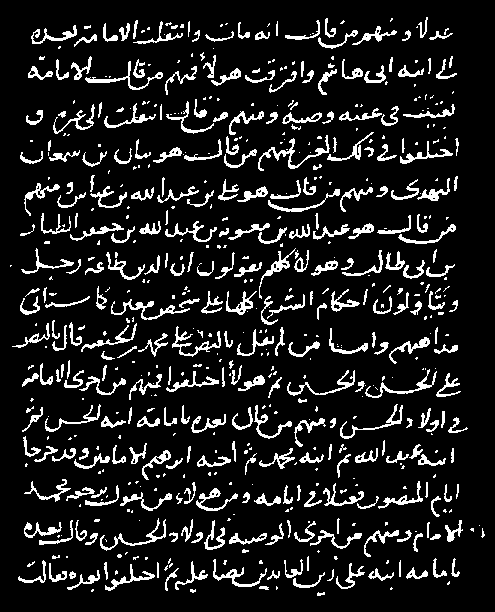 عدلا ومنهم من قال انه مات وانتقلت الامامة بعده
الى ابنه ابى هاشم وافترقت هولا فمنهم من قال الامامة
بقيت فى عقبه وصية ومنهم من قال انتقلت الى غيره و
اختلفوا فى ذلك الغير فمنهم من قال هو بيان بن سمعان
النهدى ومنهم من قال هو على بن عبد الله بن عباس ومنهم
من قال هو عبد الله بن معوية بن عبد الله بن جعفر الطيار
بن ابى طالب وهولا كلهم يقولون ان الدين طاعة رجل
ويتأولون احكام الشرع كلها على شخص معين كما ستاتى
مذاهبهم واما من لم يقل بالنص على محمد بن الحنفية قال بالنص
على الحسن والحسين ثم هولا اختلفوا فمنهم من اجرى الامامة
فى اولاد الحسن ومنهم من قال بعده بامامة ابنه الحسن ثم
ابنه عبد الله ثم ابنه محمد ثم أخيه ابرهيم الامامين وقد خرجا
ايام المنصور فقتلا فى ايامه ومن هولاء من يقول برجعة محمد
الامام ومنهم من اجرى الوصية فى اولاد الحسين وقال بعده
بامامة ابنه على زين العابدين نصا عليه ثم اختلفوا بعده فقالت